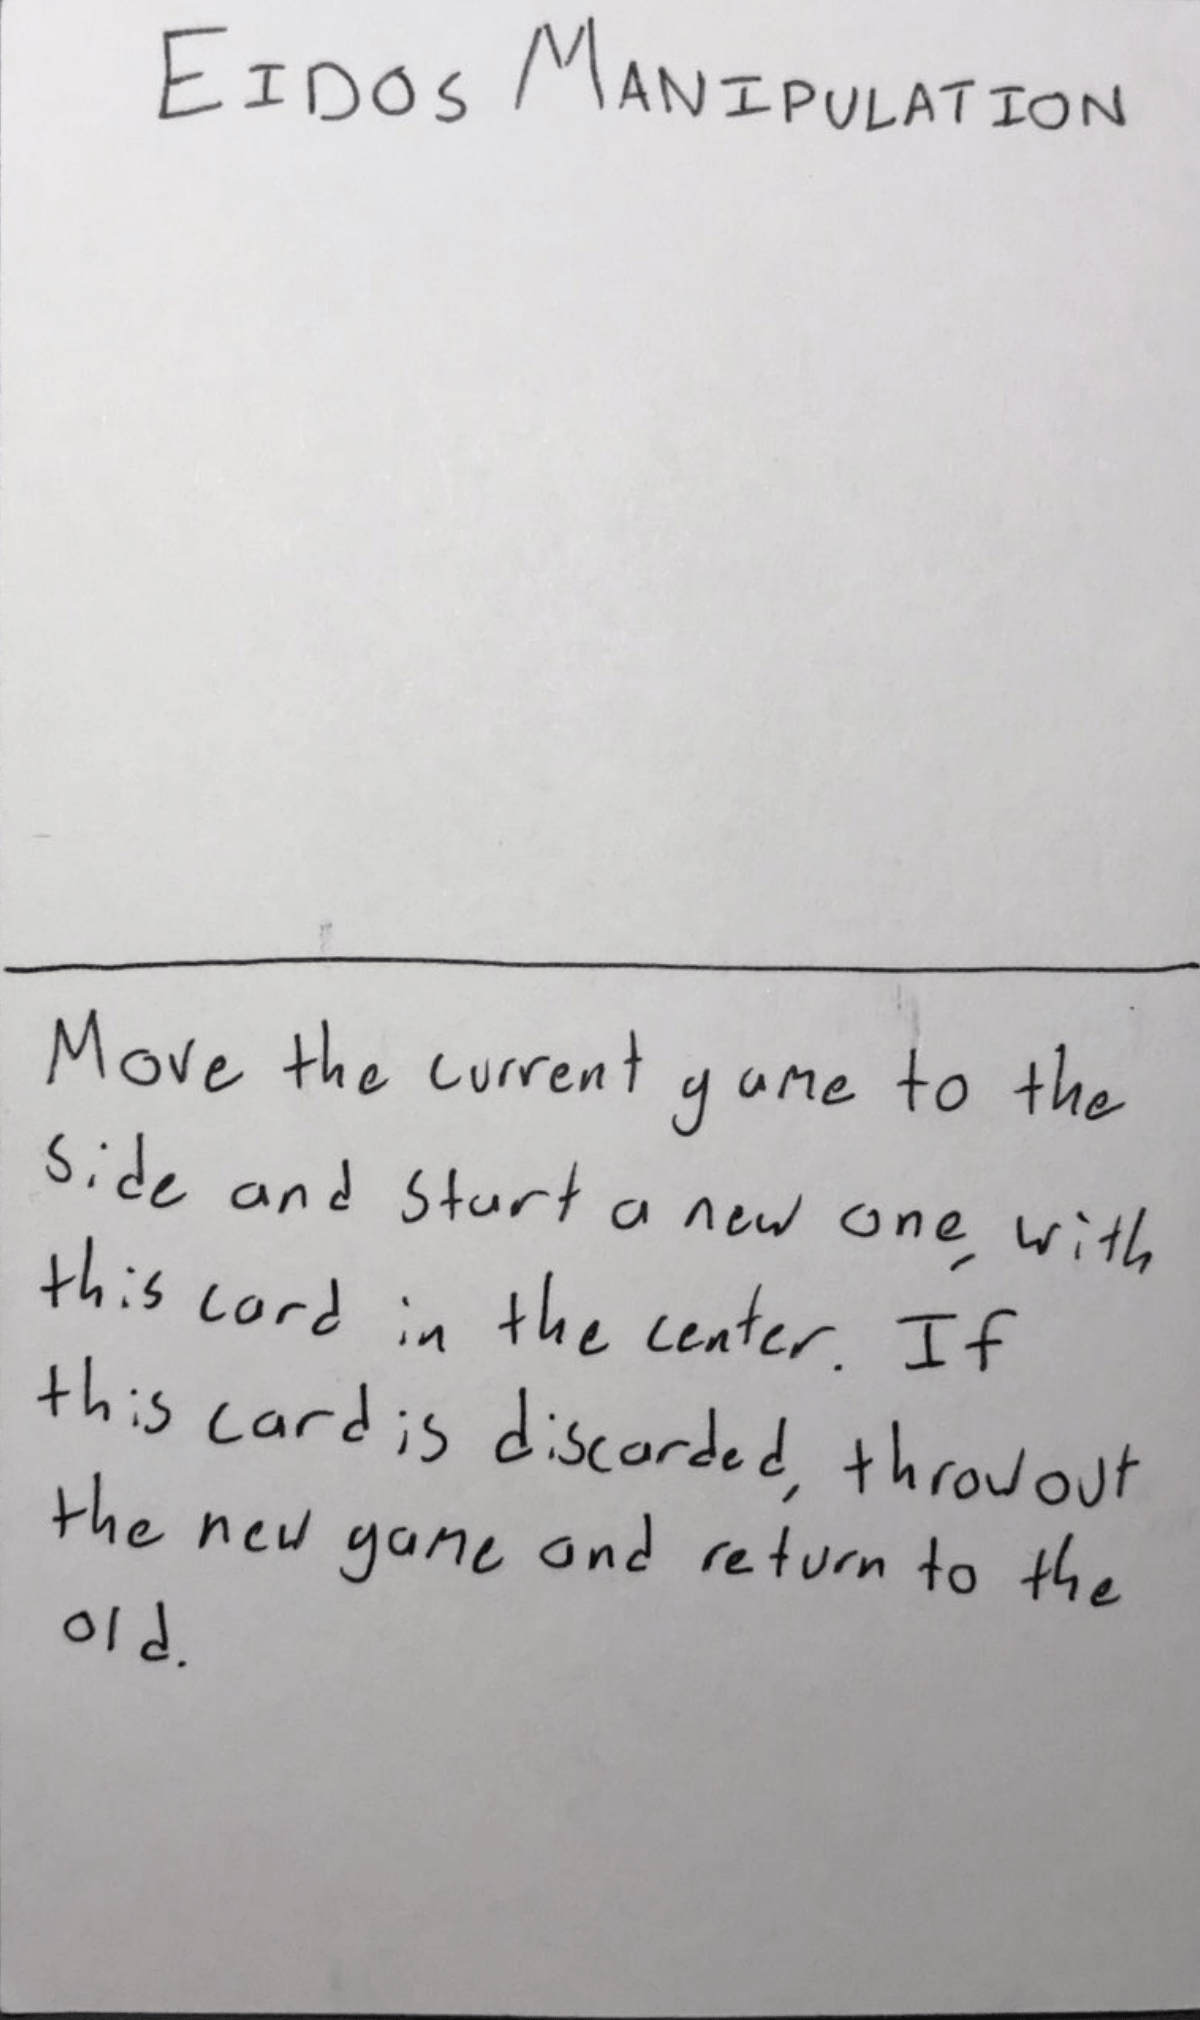 EIDOS MANIPULATION
Move the current game to the
side and start a new one, with
this card in the center. If
this card is discarded, throw out
the new game and return to the
old.